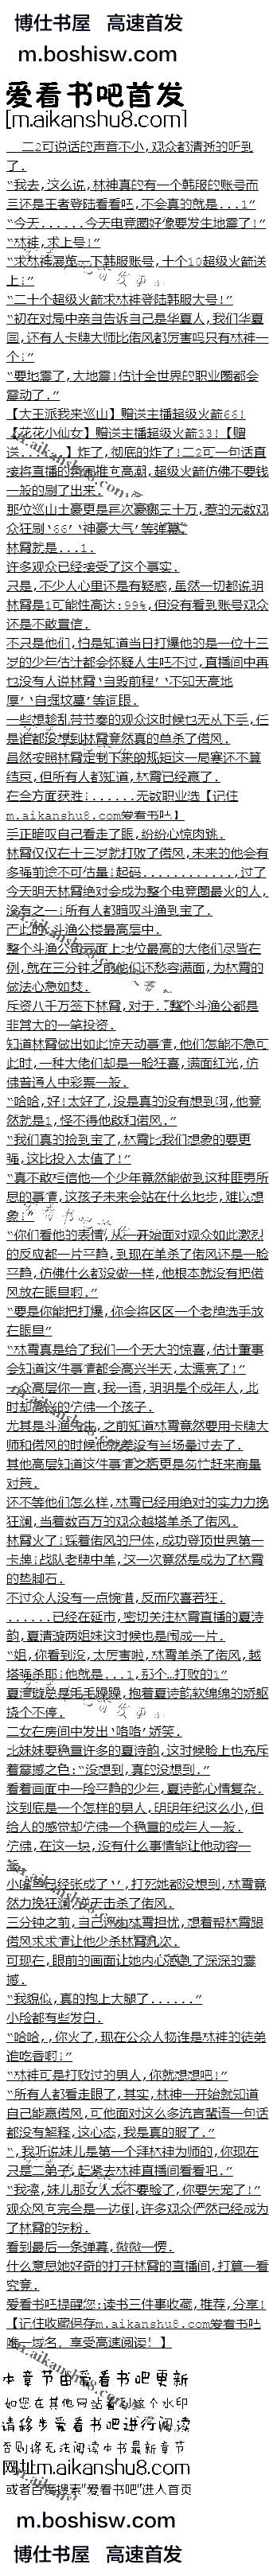 博仕书屋 高速首发
m.boshisw.com
爱看书吧首发
[m.aikanshu8.com]
二2可说话的声音不小,观众都清晰的听到
了.
“我去,这么说,林神真的有一个韩服的账号而
且还是王者登陆看看吧,不会真的就是...1”
“今天......今天电竞圈好像要发生地震了!”
“林神,求上号!”
“求林神展览一下韩服账号,十个10超级火箭送
上!”
“二十个超级火箭求林神登陆韩服大号!”
“初在对局中亲自告诉自己是华夏人,我们华夏
国,还有人卡牌大师比偌风都厉害吗只有林神一
个!”
“要地震了,大地震!估计全世界的职业圈都会
震动了.”
【大王派我来巡山】赠送主播超级火箭66!
【花花小仙女】赠送主播超级火箭33!【赠
送......】炸了,彻底的炸了!二2可一句话直
接将直播的氛围推向高潮,超级火箭仿佛不要钱
一般的刷了出来.
那位巡山土豪更是再次豪掷三十万,惹的无数观
众狂刷‘66’‘神豪大气’等弹幕.
林霄就是...1.
许多观众已经接受了这个事实.
只是,不少人心里还是有疑惑,虽然一切都说明
林霄是1可能性高达:99%,但没有看到账号观众
还是不敢置信.
不只是他们,怕是知道当日打爆他的是一位十三
岁的少年估计都会怀疑人生吧不过,直播间中再
也没有人说林霄‘自毁前程’‘不知天高地
厚’‘自掘坟墓’等词眼.
一些想趁乱带节奏的观众这时候也无从下手,任
是谁都没想到林霄竟然真的单杀了偌风.
虽然按照林霄定制下来的规矩这一局赛还不算
结束,但所有人都知道,林霄已经赢了.
在全方面获胜!......无敌职业选【记住
m.aikanshu8.com爱看书吧】
手正暗叹自己看走了眼,纷纷心惊肉跳.
林霄仅仅在十三岁就打败了偌风,未来的他会有
多强前途不可估量!起码............,过了
今天明天林霄绝对会成为整个电竞圈最火的人,
没有之一!所有人都暗叹斗渔到宝了.
而此时,斗渔公楼最高层中.
整个斗渔公司层面上地位最高的大佬们尽皆在
例,就在三分钟之前他们还愁容满面,为林霄的
做法心急如焚.
斥资八千万签下林霄,对于...整个斗渔公都是
非常大的一笔投资.
知道林霄做出如此惊天动事情,他们怎能不急可
此时,一种大佬们却是一脸狂喜,满面红光,仿
佛普通人中彩票一般.
“哈哈,好!太好了,没是真的没有想到啊,他竟
然就是1,怪不得他敢和偌风.”
“我们真的捡到宝了,林霄比我们想象的要更
强,这比投入太值了!”
“真不敢相信他一个少年竟然能做到这种匪夷所
思的事情,这孩子未来会站在什么地步,难以想
象!”
“你们看他的表情,从一开始面对观众如此激烈
的反应都一片平静,到现在单杀了偌风还是一脸
平静,仿佛什么都没做一样,他根本就没有把偌
风放在眼里啊.”
“要是你能把打爆,你会将区区一个老牌选手放
在眼里”
“林霄真是给了我们一个天大的惊喜,估计董事
会知道这件事情都会高兴半天,太漂亮了!”
一众高层你一言,我一语,明明是个成年人,此
时却激动的仿佛一个孩子.
尤其是斗渔女主,之前知道林霄竟然要用卡牌大
师和偌风的时候他就差没有当场晕过去了.
其他高层知道这件事情之后更是匆忙赶来商量
对策.
还不等他们怎么样,林霄已经用绝对的实力力挽
狂澜,当着数百万的观众越塔单杀了偌风.
林霄火了!踩着偌风的尸体,成功登顶世界第一
卡牌!战队老牌中单,这一次竟然是成为了林霄
的垫脚石.
不过众人没有一点惋惜,反而欣喜若狂.
......已经在延市,密切关注林霄直播的夏诗
韵,夏清璇两姐妹这时候也是闹成一片.
“姐,你看到没,太厉害啦,林霄单杀了偌风,越
塔强杀耶!他就是...1,那个..打败的1”
夏清璇总是毛毛躁躁,抱着夏诗韵软绵绵的娇躯
挠个不停.
二女在房间中发出‘咯咯’娇笑.
比妹妹要稳重许多的夏诗韵,这时候脸上也充斥
着震撼之色:“没想到,真的没想到.”
看着画面中一脸平静的少年,夏诗韵心情复杂.
这到底是一个怎样的男人,明明年纪这么小,但
给人的感觉却仿佛一个稳重的成年人一般.
仿佛,在这一块,没有什么事情能让他动容一
般.
小嘴里已经张成了丫,打死她都没想到,林霄竟
然力挽狂澜,逆天击杀了偌风.
三分钟之前,自己还为林霄担忧,想着帮林霄跟
偌风求求情让他少杀林霄几次.
可现在,眼前的画面让她内心受到了深深的震
撼.
“我貌似,真的抱上大腿了......”
小脸都有些发白.
“哈哈,,你火了,现在公众人物谁是林神的徒弟
谁吃香啊!”
“林神可是打败过的男人,你就想想吧!”
“所有人都看走眼了,其实,林神一开始就知道
自己能赢偌风,可他面对这么多流言蜚语一句话
都没有解释,这心态,我是真的服了.”
“,我听说妹儿是第一个拜林神为师的,你现在
只是二弟子,赶紧去林神直播间看看吧.”
“我凑,妹儿那女人太不要脸了,你要失宠了!”
观众风向完全是一边倒,许多观众俨然已经成为
了林霄的铁粉.
看到最后一条弹幕,微微一愣.
什么意思她好奇的打开林霄的直播间,打算一看
究竟.
爱看书吧提醒您:读书三件事收藏,推荐,分享!
【记住收藏保存m.aikanshu8.com爱看书吧
唯一域名, 享受高速阅读! 】
本章节由爱看书吧更新
如您在其他网站看到这个水印
请移步爱看书吧进行阅读
否则将无法阅读本书最新章节
网址m.aikanshu8.com
或者百度搜索“爱看书吧”进入首页
m.boshisw.com
博仕书屋 高速首发